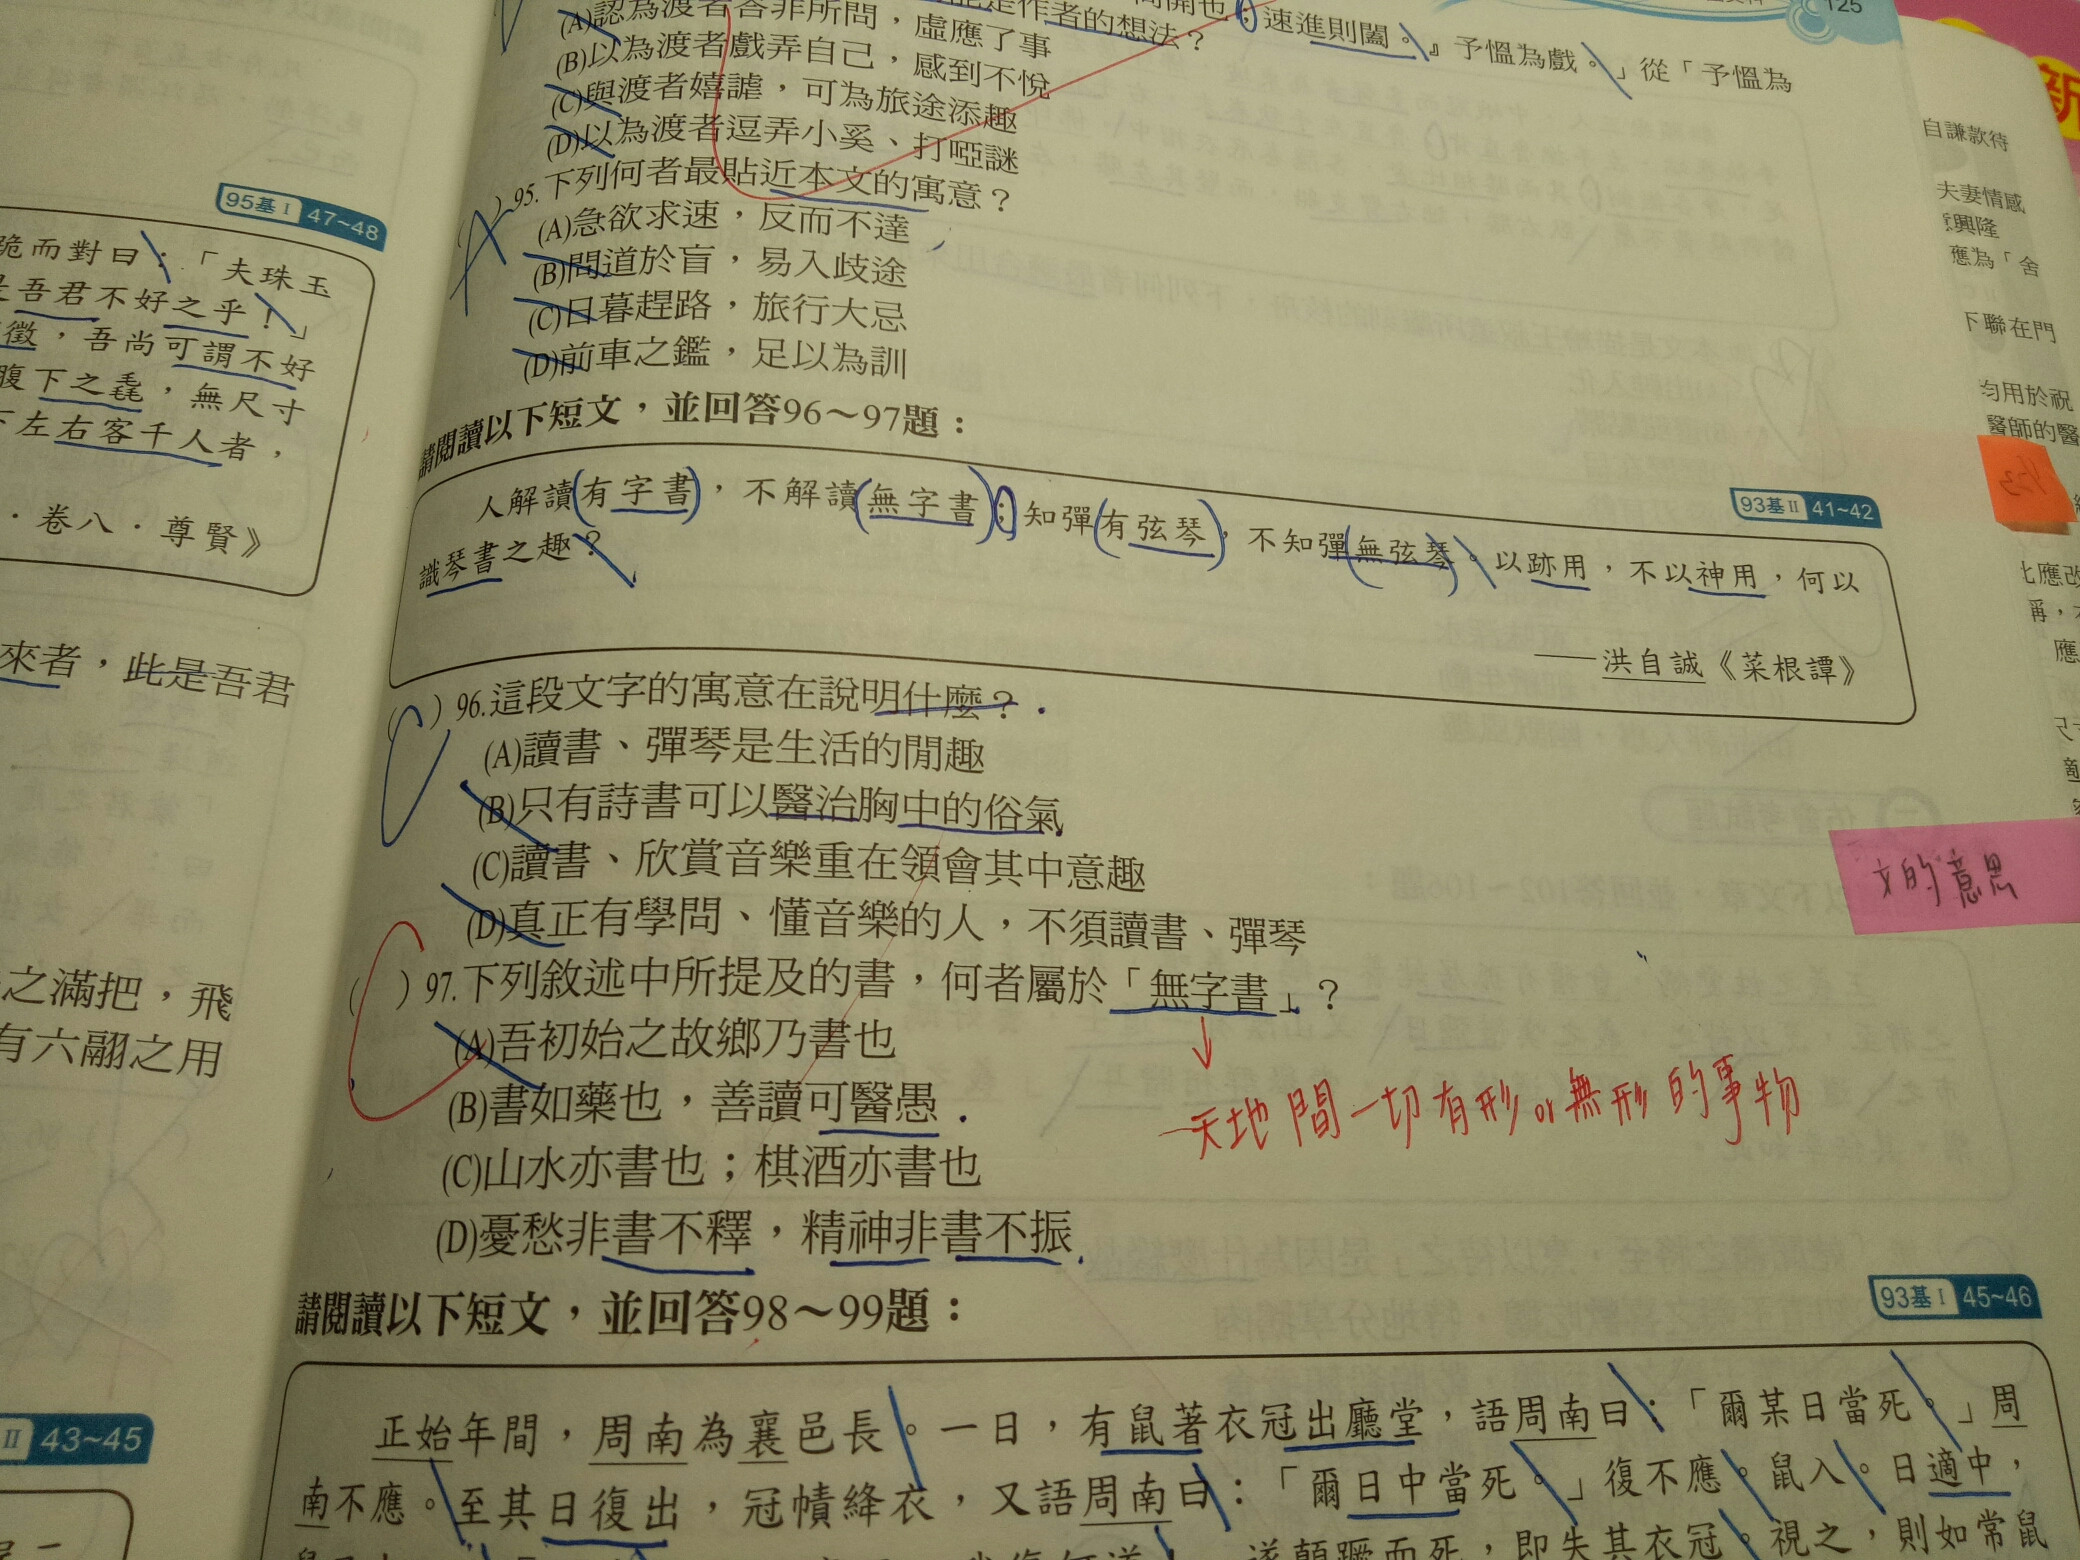 125
(A)認為渡者答非所問，虛應了事
是作者的想法？
速進則闔。』予慍為戲。」從「予慍為
(B)以為渡者戲弄自己，感到不悅
(C)與渡者嬉謔，可為旅途添趣
(D)以為渡者逗弄小奚、打啞謎
A
)95.下列何者最貼近本文的寓意？
(A)急欲求速，反而不達
(B)問道於盲，易入歧途
(C)日暮趕路，旅行大忌
(D)前車之鑑，足以為訓
請閱讀以下短文，並回答96～97題：
93基Ⅱ 41~42
人解讀有字書，不解讀無字書；知彈有弦琴，不知彈無弦琴。以跡用，不以神用，何以
識琴書之趣？
——洪自誠《菜根譚》
C
( )96.這段文字的寓意在說明什麼？
(A)讀書、彈琴是生活的閒趣
(B)只有詩書可以醫治胸中的俗氣
(C)讀書、欣賞音樂重在領會其中意趣
(D)真正有學問、懂音樂的人，不須讀書、彈琴
C
( )97.下列敘述中所提及的書，何者屬於「無字書」？
(A)吾初始之故鄉乃書也
(B)書如藥也，善讀可醫愚
(C)山水亦書也；棋酒亦書也
(D)憂愁非書不釋，精神非書不振
天地間一切有形or無形的事物
請閱讀以下短文，並回答98～99題：
93基Ⅰ 45~46
正始年間，周南為襄邑長。一日，有鼠著衣冠出廳堂，語周南曰：「爾某日當死。」周
南不應。至其日復出，冠幘絳衣，又語周南曰：「爾日中當死。」復不應。鼠入。日適中，
遂顛蹶而死，即失其衣冠。視之，則如常鼠
95基Ⅰ 47~48
跪而對曰：「夫珠玉
吾君不好之乎！」
徵，吾尚可謂不好
腹下之毳，無尺寸
下左右客千人者，
．卷八．尊賢》
來者，此是吾君
之滿把，飛
有六翮之用
Ⅱ 43~45
新
自謙款待
夫妻情感
興隆
應為「舍
下聯在門
均用於祝
醫師的醫
4/23
應改
文的意思